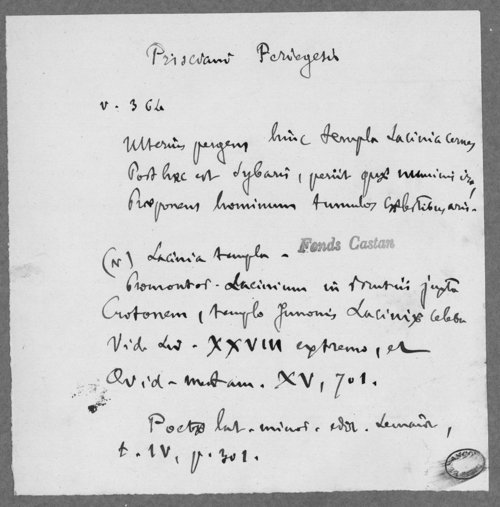 Prisciani Periegesis
v. 364
Ulterius pergens hinc templa Lacinia cernes
Post hæc est Sybaris, periit quæ numinis ira,
Præponens hominum tumulos cælestibus aris.
Fonds Castan
(N) Lacinia templa -
Promontor. Lacinium in Bruttiis juxta
Crotonem, templo Junonis Laciniæ celebre
Vid. Liv. XXVIII extremo, et
Ovid. metam. XV, 701.
Poetæ lat. minor. edit. Lemaire,
t. IV, p. 301.